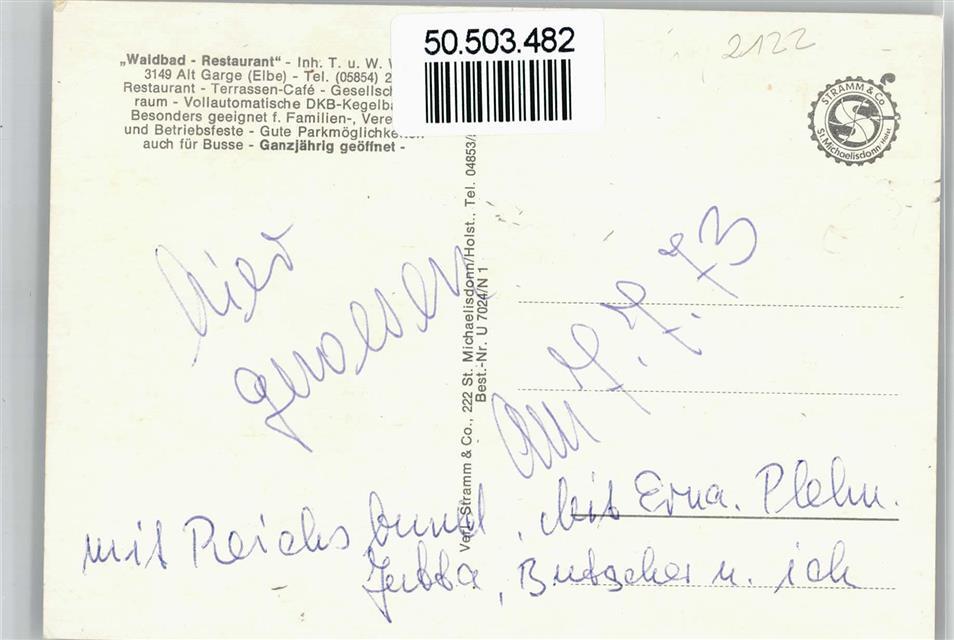 50.503.482
2122
„Waldbad - Restaurant“ - Inh. T. u. W.
3149 Alt Garge (Elbe) - Tel. (05854) 2
Restaurant - Terrassen-Café - Gesellsch
raum - Vollautomatische DKB-Kegelba
Besonders geeignet f. Familien-, Vere
und Betriebsfeste - Gute Parkmöglichkeiten
auch für Busse - Ganzjährig geöffnet -
STRAMM & Co
St. Michaelisdonn/Holst.
Verl. Stramm & Co., 222 St. Michaelisdonn/Holst., Tel. 04853/
Best.-Nr. U 7024/N 1
hier
gewesen
am 7. 7. 73
mit Reichsbund, mit Erna. Plehn.
Jutta, Butscher u. ich